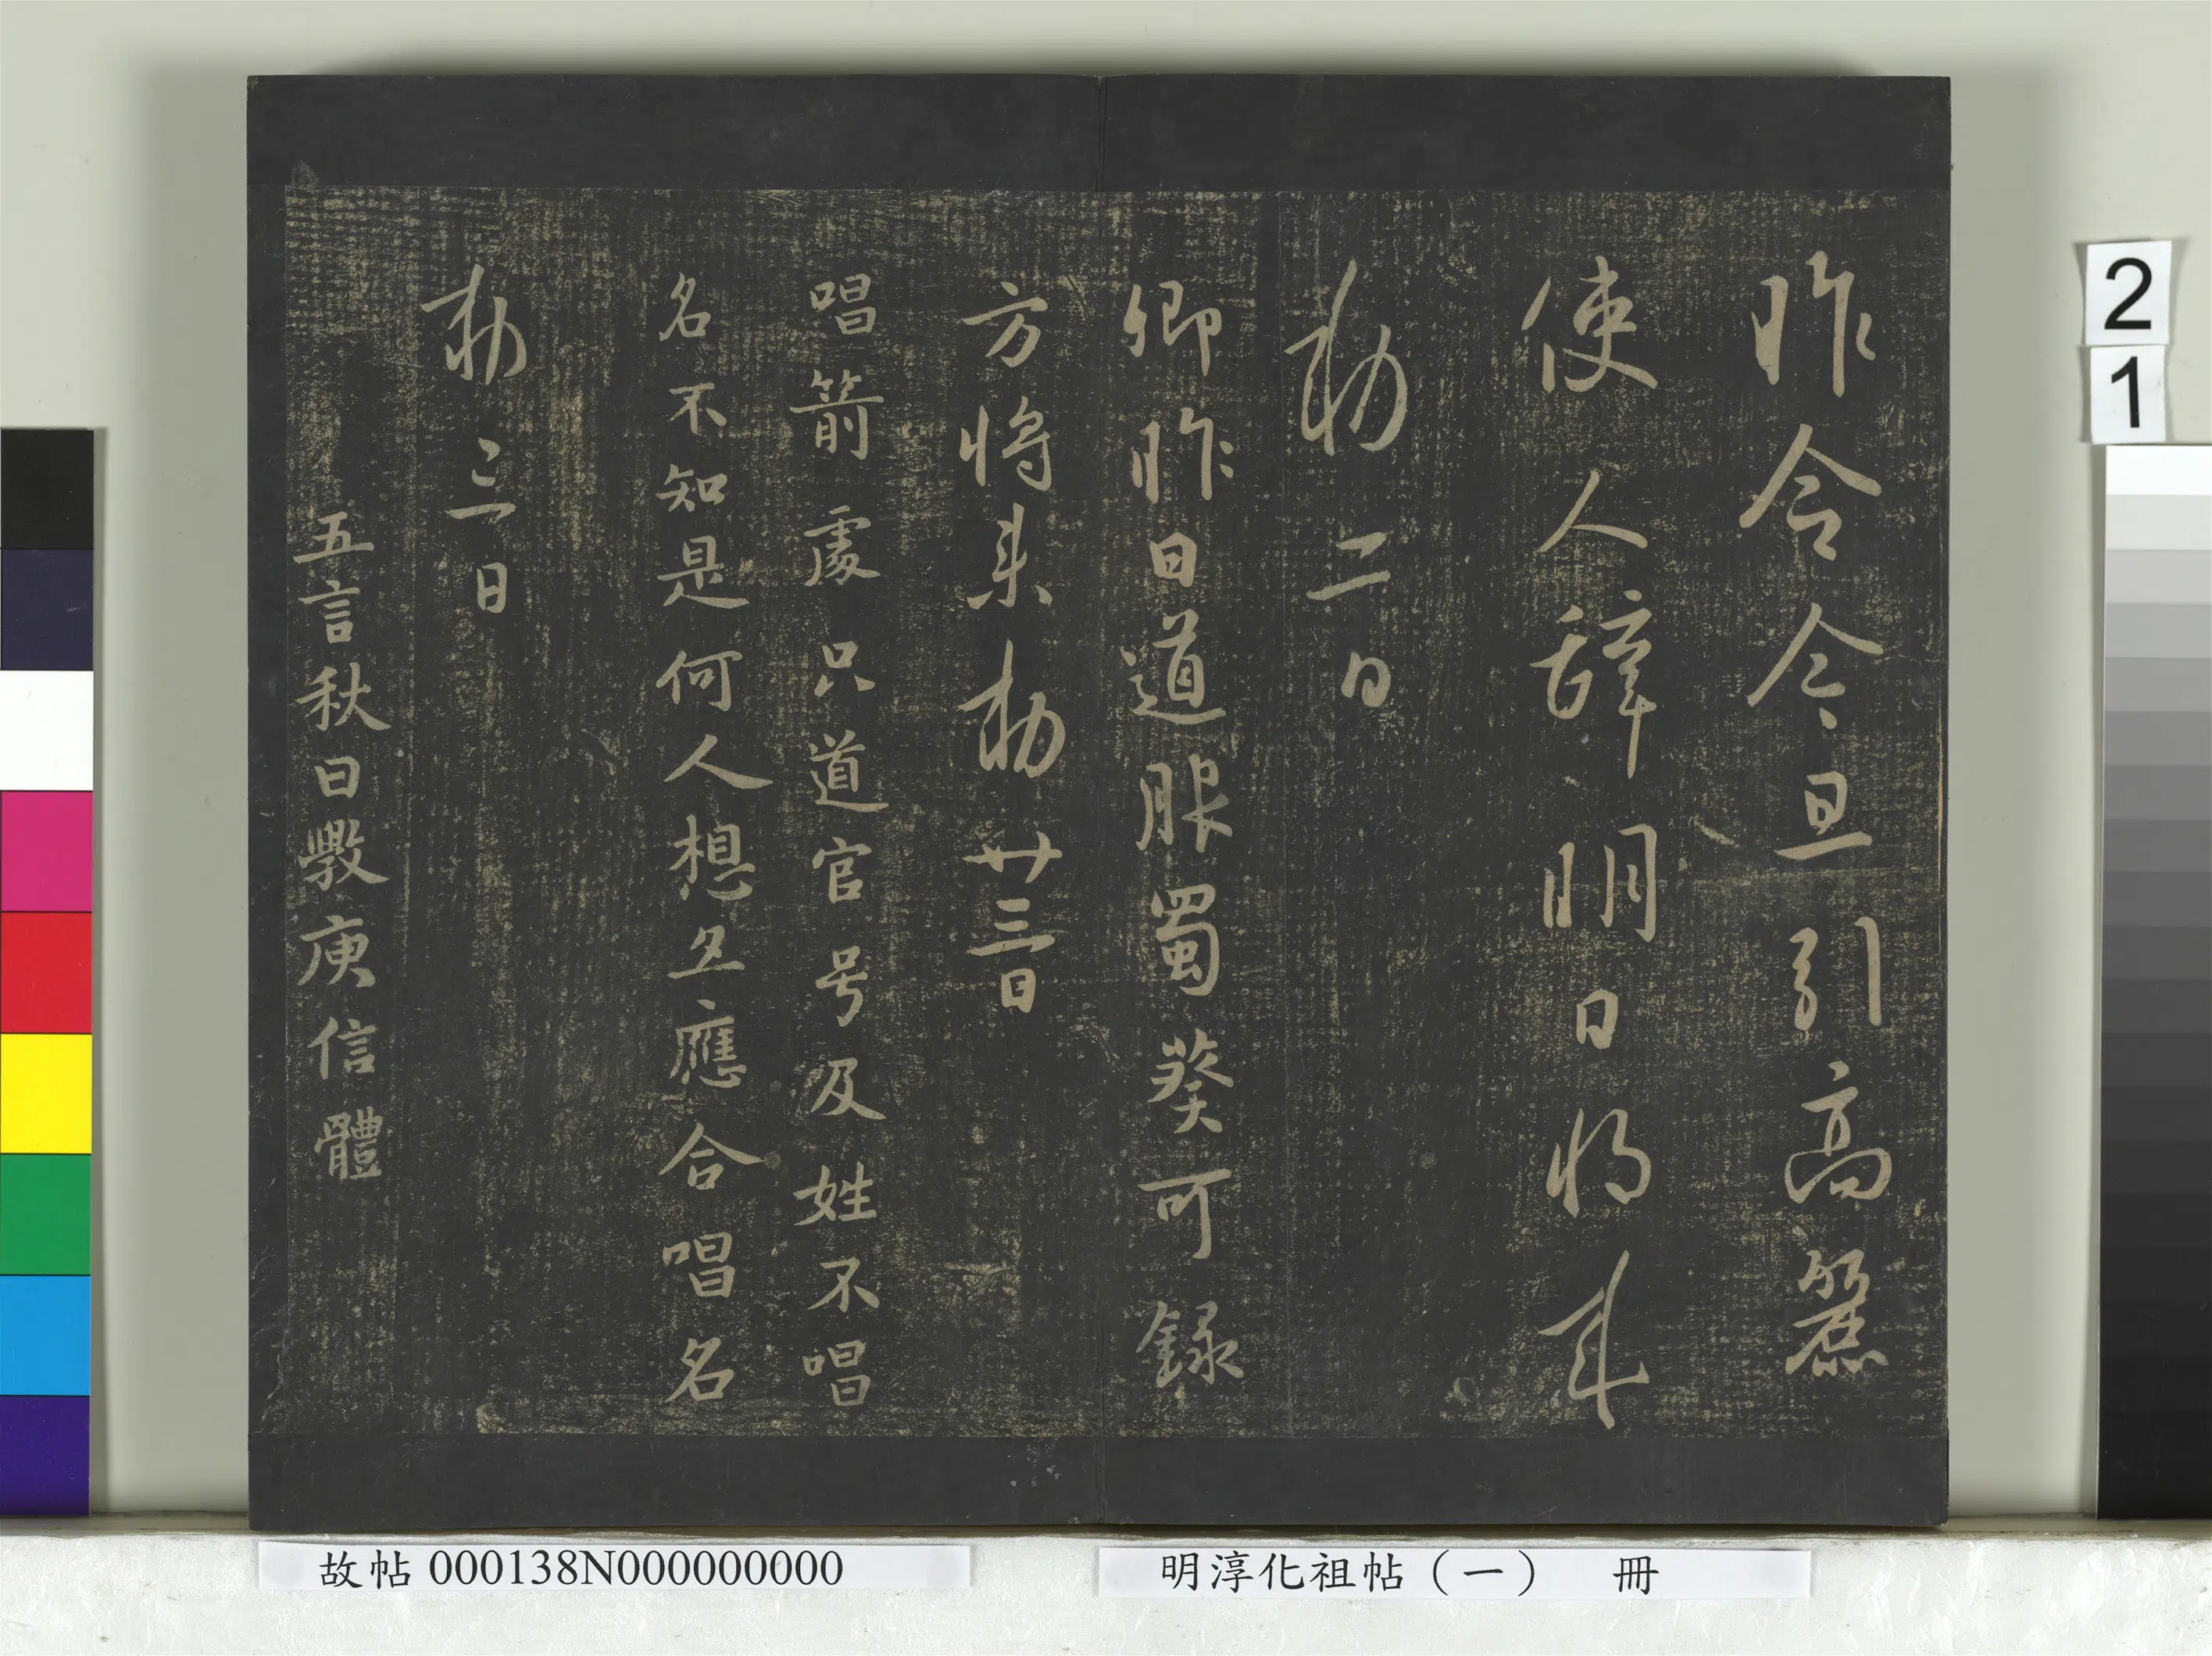 昨令今旦引高麗
使人辞明日將來
勅二日
卿昨日道服蜀葵可録
方將来勅廿三日
唱箭處只道官号及姓不唱
名不知是何人想互應合唱名
勅三日
五言秋日斆庾信體
2
1
故帖000138N000000000
明淳化祖帖（一） 冊